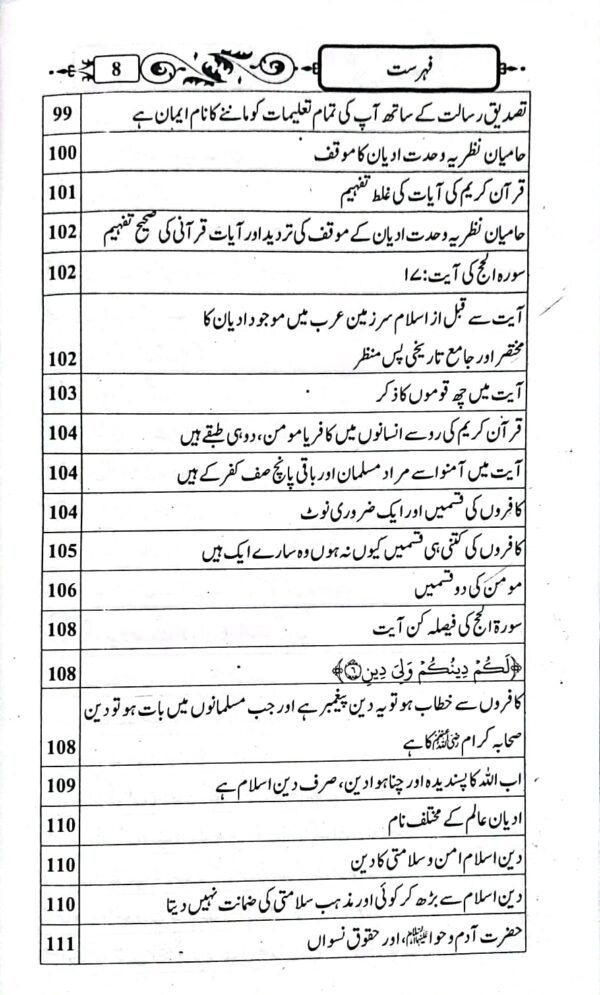 فہرست
8
تصدیق رسالت کے ساتھ آپ کی تمام تعلیمات کو ماننے کا نام ایمان ہے 99
حامیان نظریہ وحدت ادیان کا موقف 100
قرآن کریم کی آیات کی غلط تفہیم 101
حامیان نظریہ وحدت ادیان کے موقف کی تردید اور آیات قرآنی کی صحیح تفہیم 102
سورہ الحج کی آیت: ۱۷ 102
آیت سے قبل از اسلام سرزمین عرب میں موجود ادیان کا
مختصر اور جامع تاریخی پس منظر 102
آیت میں چھ قوموں کا ذکر 103
قرآن کریم کی رو سے انسانوں میں کافر یا مومن، دو ہی طبقے ہیں 104
آیت میں آمنوا سے مراد مسلمان اور باقی پانچ صف کفر کے ہیں 104
کافروں کی قسمیں اور ایک ضروری نوٹ 104
کافروں کی کتنی ہی قسمیں کیوں نہ ہوں وہ سارے ایک ہیں 105
مومن کی دو قسمیں 106
سورۃ الحج کی فیصلہ کن آیت 108
﴿لَكُمْ دِينُكُمْ وَلِيَ دِينِ ۝٦﴾ 108
کافروں سے خطاب ہو تو یہ دین پیغمبر ہے اور جب مسلمانوں میں بات ہو تو دین
صحابہ کرام رضی اللہ عنہم کا ہے 108
اب اللہ کا پسندیدہ اور چنا ہوا دین، صرف دین اسلام ہے 109
ادیان عالم کے مختلف نام 110
دین اسلام امن و سلامتی کا دین 110
دین اسلام سے بڑھ کر کوئی اور مذہب سلامتی کی ضمانت نہیں دیتا 110
حضرت آدم و حوا علیہما السلام، اور حقوق نسواں 111